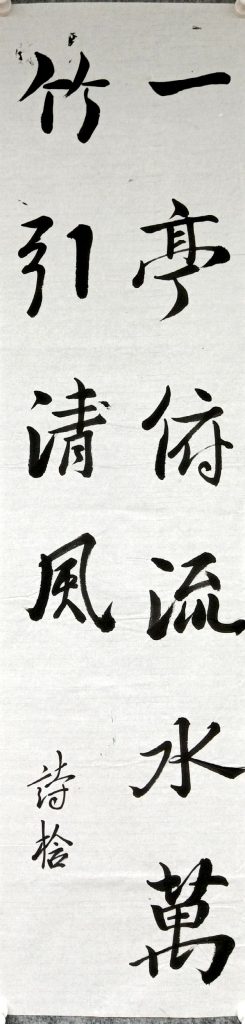 一亭俯流水萬
竹引清風
詩捨